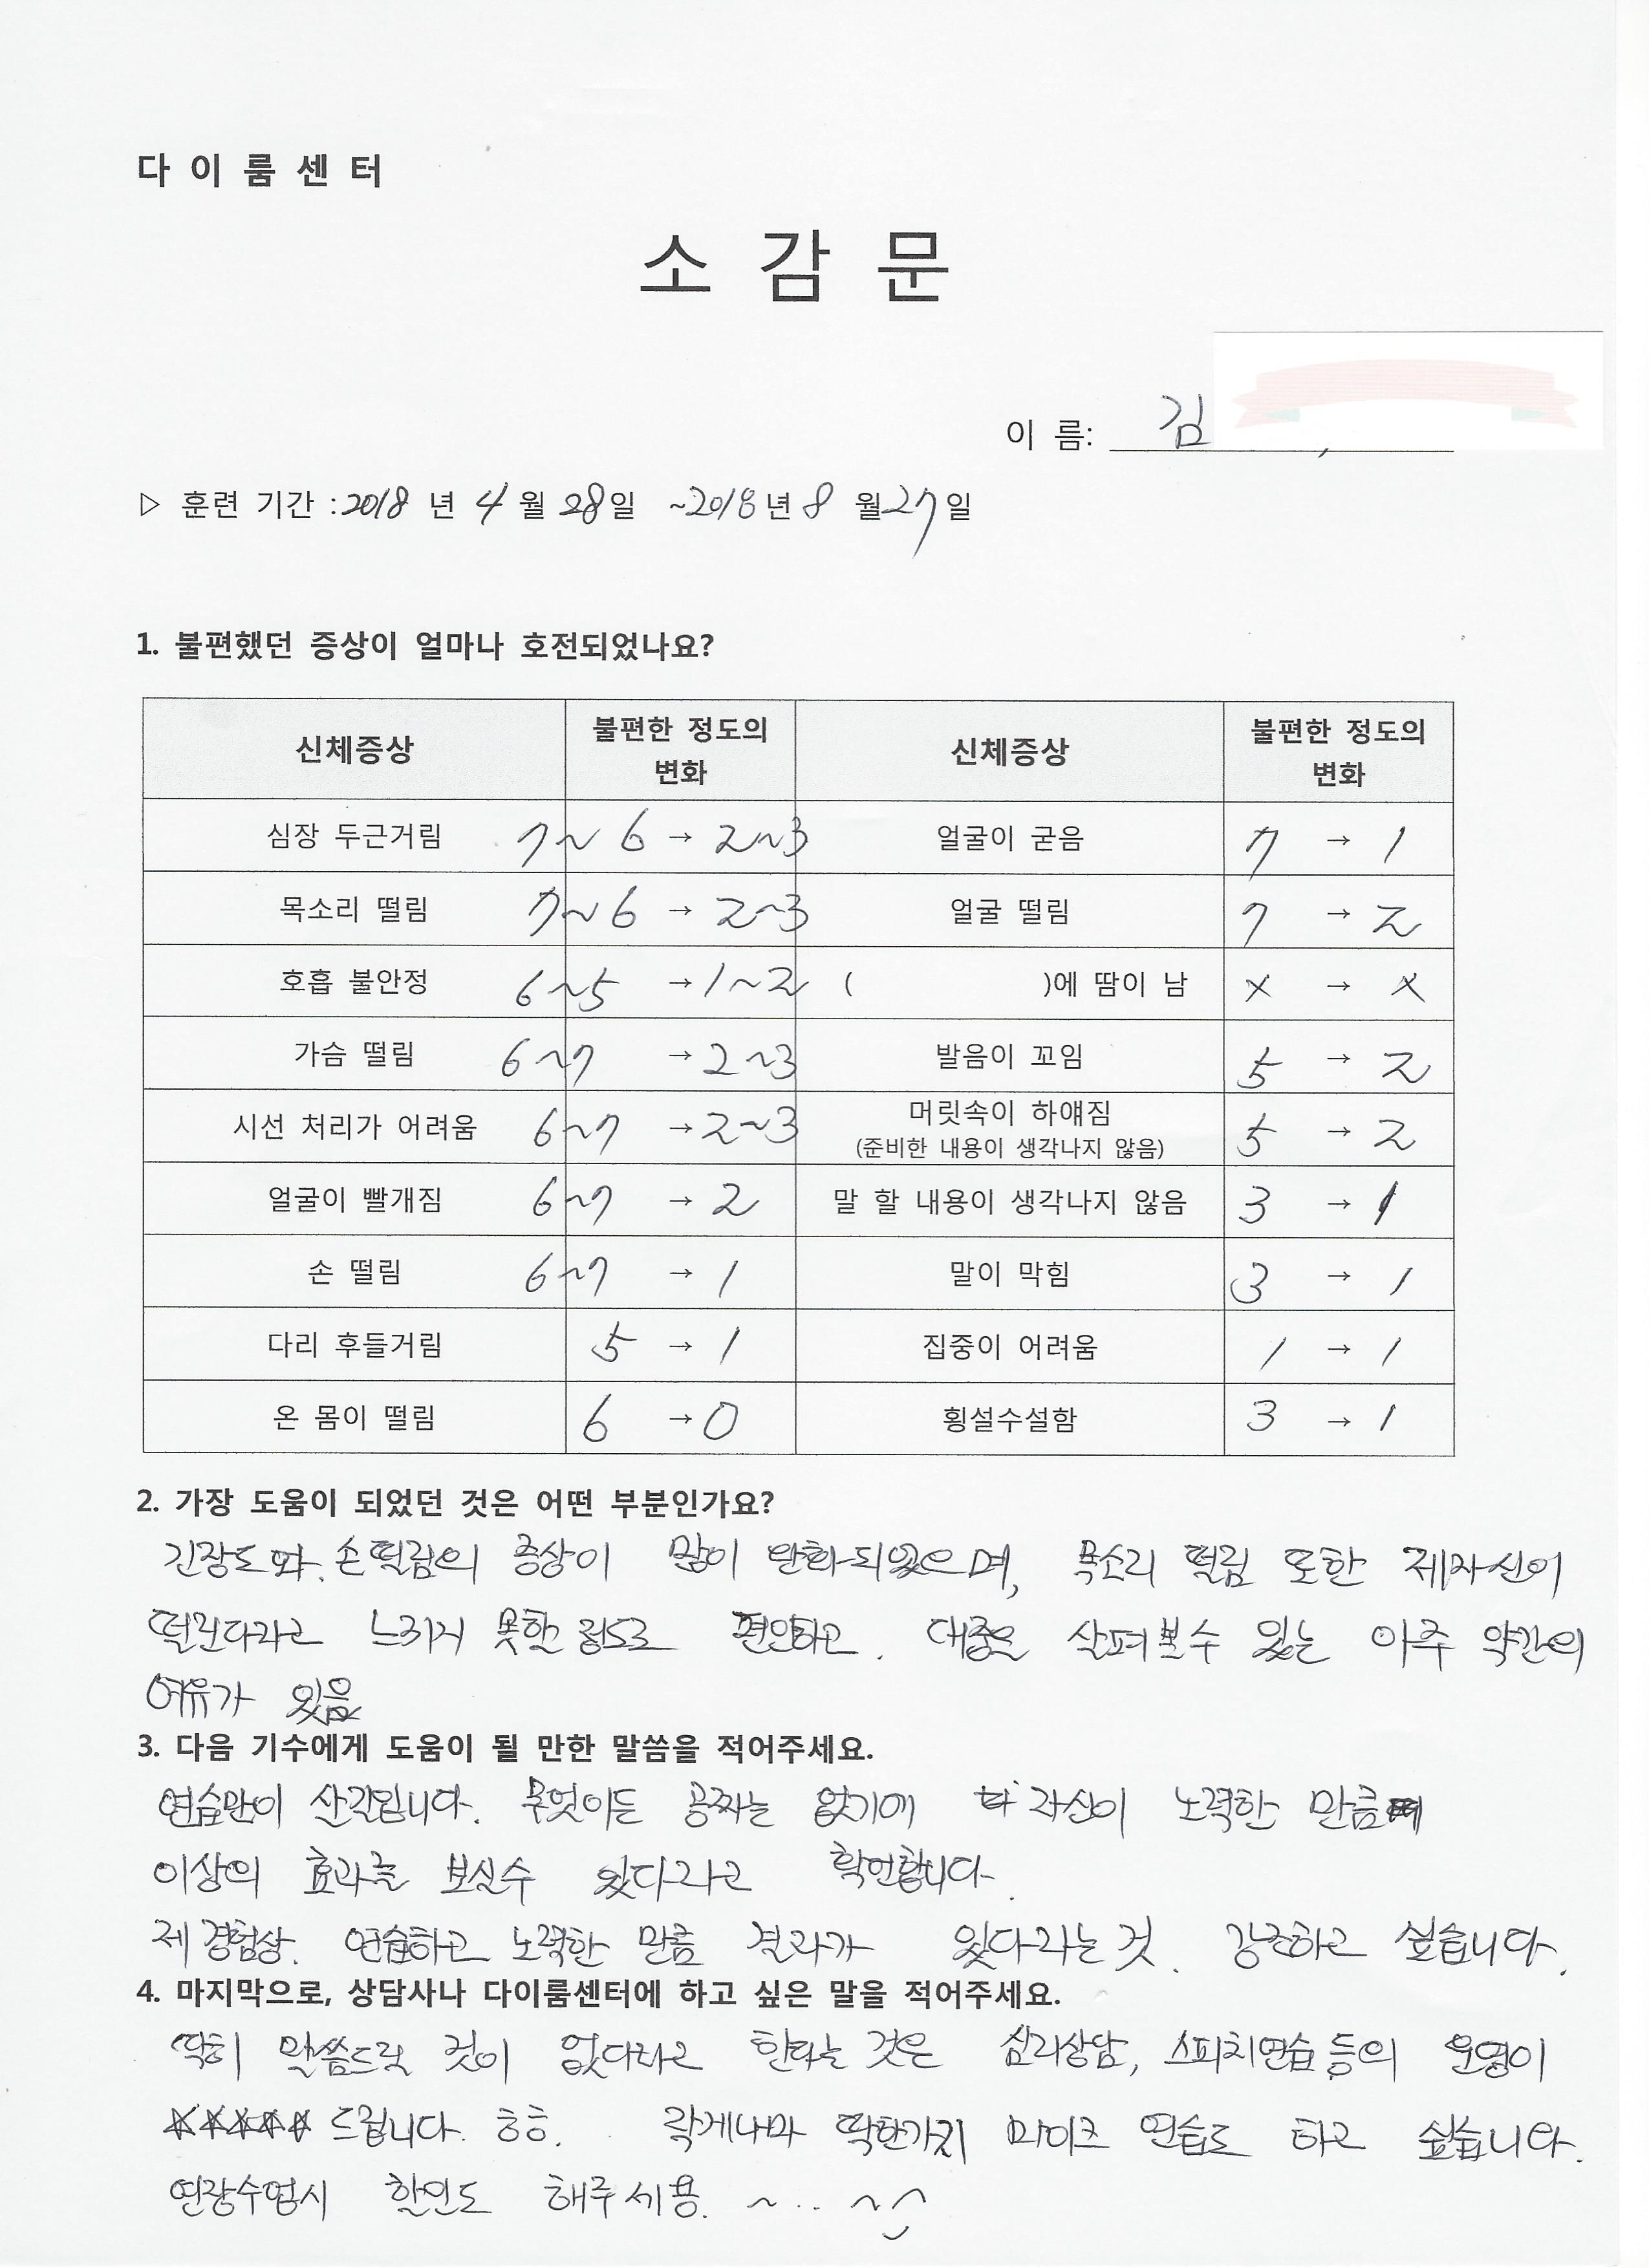 다이룸센터
소 감 문
이 름: 김
▷ 훈련 기간 : 2018 년 4 월 28일 ~2018년 8 월 27일
1. 불편했던 증상이 얼마나 호전되었나요?
신체증상 불편한 정도의 변화 신체증상 불편한 정도의 변화
심장 두근거림 7~6 → 2~3 얼굴이 굳음 7 → 1
목소리 떨림 7~6 → 2~3 얼굴 떨림 7 → 2
호흡 불안정 6~5 → 1~2 ( )에 땀이 남 x → x
가슴 떨림 6~7 → 2~3 발음이 꼬임 5 → 2
시선 처리가 어려움 6~7 → 2~3 머릿속이 하얘짐 (준비한 내용이 생각나지 않음) 5 → 2
얼굴이 빨개짐 6~7 → 2 말 할 내용이 생각나지 않음 3 → 1
손 떨림 6~7 → 1 말이 막힘 3 → 1
다리 후들거림 5 → 1 집중이 어려움 1 → 1
온 몸이 떨림 6 → 0 횡설수설함 3 → 1
2. 가장 도움이 되었던 것은 어떤 부분인가요?
긴장도와. 손떨림의 증상이 많이 완화되었으며, 목소리 떨림 또한 제자신이
떨린다라고 느끼지 못할 정도로 편안하고. 대중을 살펴볼수 있는 아주 약간의
여유가 있음
3. 다음 기수에게 도움이 될 만한 말씀을 적어주세요.
연습만이 살길입니다. 무엇이든 공짜는 없기에 자신이 노력한 만큼
이상의 효과를 보실수 있다라고 확언합니다.
제 경험상. 연습하고 노력한 만큼 결과가 있다라는 것. 강조하고 싶습니다.
4. 마지막으로, 상담사나 다이룸센터에 하고 싶은 말을 적어주세요.
딱히 말씀드릴 것이 없다라고 한다는 것은 심리상담, 스피치연습 등의 운영이
☆☆☆☆☆ 드립니다. ㅎㅎ. 딱한가지 마이크 연습도 하고 싶습니다.
연장수업시 할인도 해주세용. ~..~